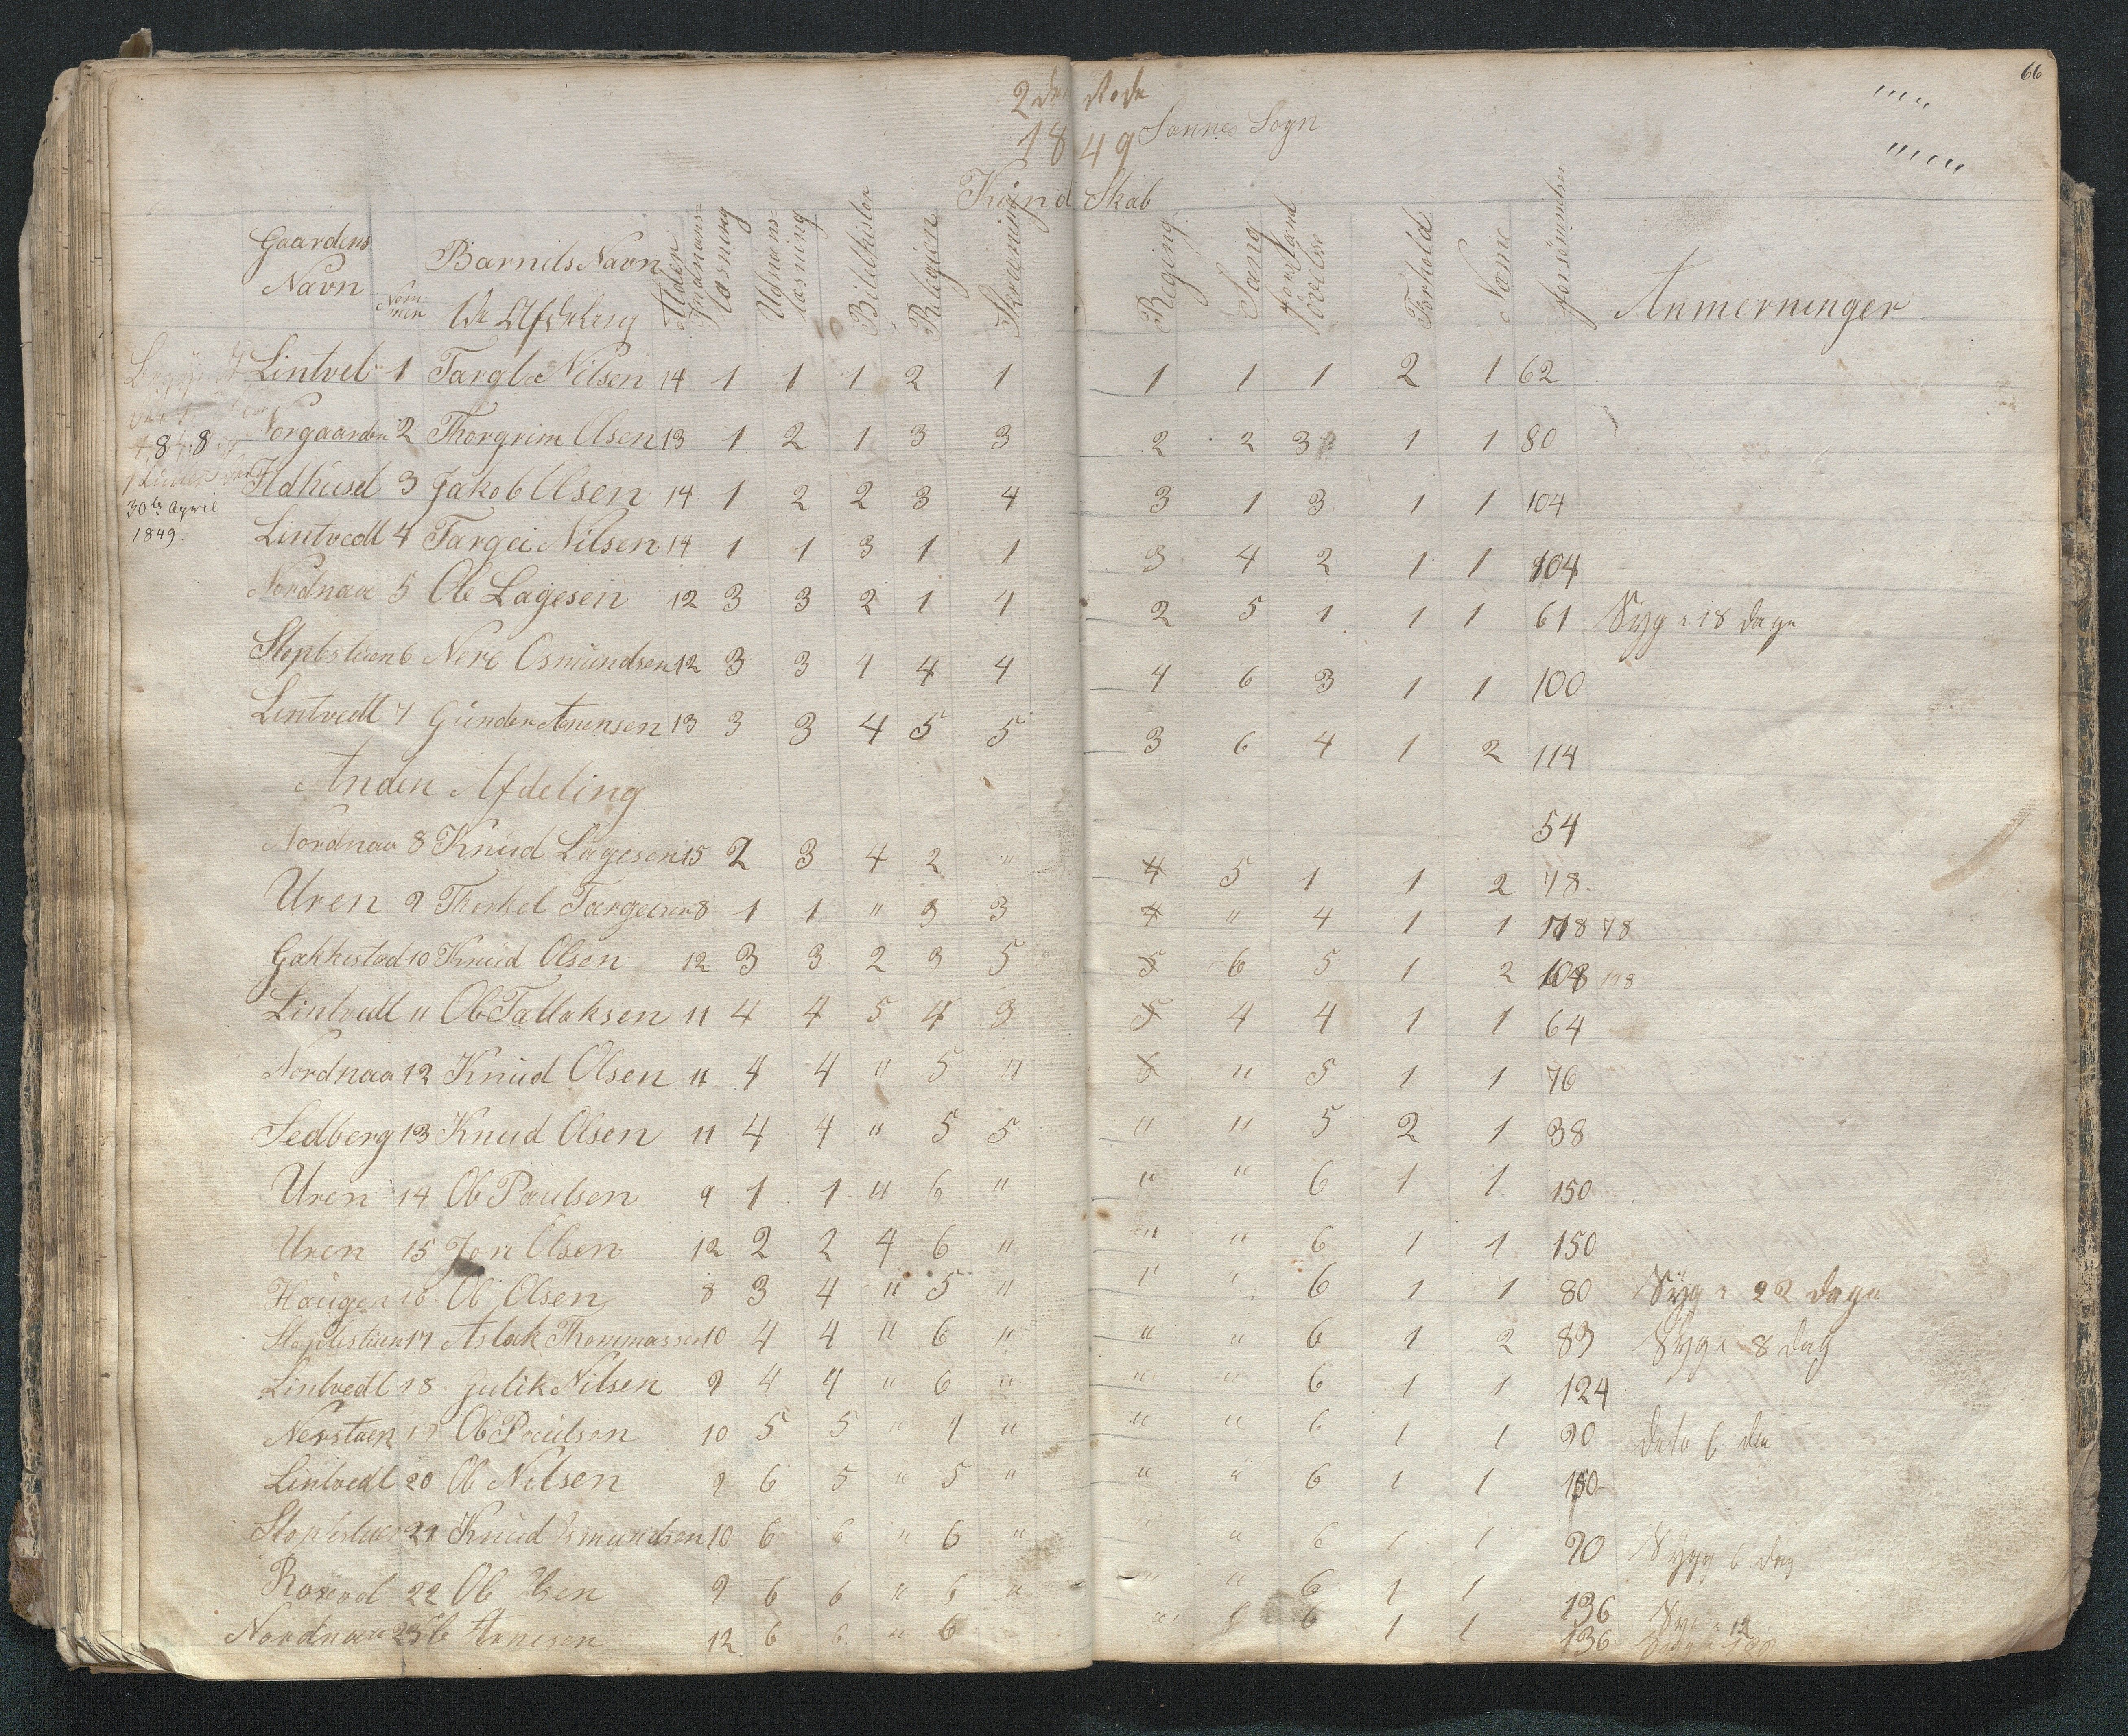 66
2den Rode
1849 Sannes Sogn
Kund Skab
Gaardens Navn
Nommer
Barnets Navn
1ste Afdeling
Alder
Indnans=læsning
Udnans=læsning
Bibelhistor
Religion
Skrivning
Regning
Sang
Forstand övelse
Forhold
Næme
forsömmelser
Anmerninger
1848
30te April
1849.
Lintvet 1 Targe Nilsen 14 1 1 1 2 1 1 1 1 2 1 62
Norgaarden 2 Thorgrim Olsen 13 1 2 1 3 3 2 2 3 1 1 80
Ildhused 3 Jakob Olsen 14 1 2 2 3 4 3 1 3 1 1 104
Lintvedt 4 Targei Nilsen 14 1 1 3 1 1 3 4 2 1 1 104
Nordnaa 5 Ole Lagesen 12 3 3 2 1 4 2 5 1 1 1 61 Syg 18 dage
6 Osmundsen 12 3 3 4 4 4 4 6 3 1 1 100
Lintvedt 7 Gunder 13 3 3 4 5 5 3 6 4 1 2 114
Anden Afdeling
54
Nordnaa 8 Knud Lagesen 15 2 3 4 2 " 4 5 1 1 2 78.
Uren 9 Thorkel Targeisen 8 1 1 " 3 3 4 " 4 1 1 78
Gakkestad 10 Knud Olsen 12 3 3 2 3 5 5 6 5 1 2 108 108
Lintvedt 11 Ole Tallaksen 11 4 4 5 4 3 5 4 4 1 1 64
Nordnaa 12 Knud Olsen 11 4 4 " 5 " 6 " 5 1 1 76
Sedberg 13 Knud Olsen 11 4 4 " 5 5 " " 5 2 1 38
Uren 14 Ole Paulsen 9 1 1 " 6 " " " 6 1 1 150
Uren 15 Jon Olsen 12 2 2 4 6 " " " 6 1 1 150
Haugen 16 Ole Olsen 8 3 4 " 5 " " " 6 1 1 80 Syg 22 dage
17 Aslak Thommassen 10 4 4 " 6 " " " 6 1 2 83 Syg 8 dag
Lintvedt 18 Gulik Nilsen 9 4 4 " 6 " " " 6 1 1 124
19 Ole Paulsen 10 5 5 " 4 " " " 6 1 1 90
Lintvedt 20 Ole Nilsen 9 6 5 " 5 " " " 6 1 1 150
21 Knud Osmundsen 10 6 6 " 6 " " " 6 1 1 90 Syg 6 dag
22 Ole Olsen 9 6 6 " 6 " " " 6 1 1 136
Nordnaa 23 Ole Arnesen 12 6 6 " 6 6 1 1 136